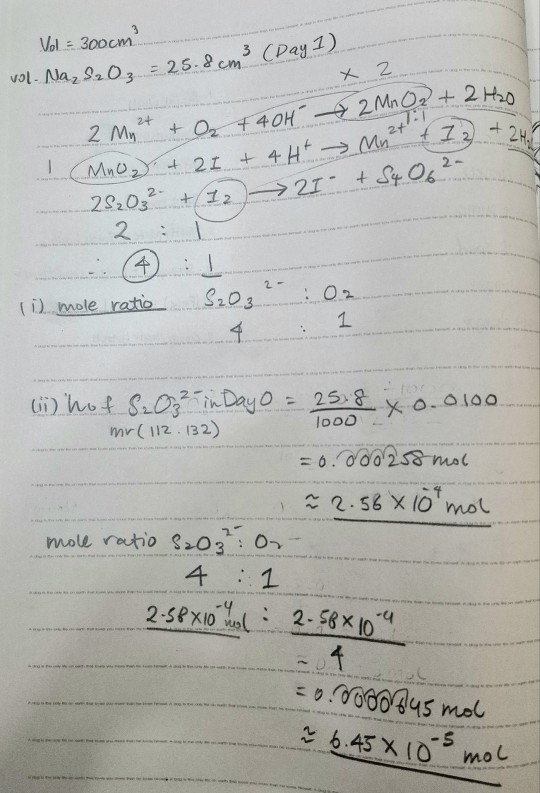 Vol = 300cm³
vol. Na₂S₂O₃ = 25.8cm³ (Day 1)
× 2
2 Mn²⁺ + O₂ + 4OH⁻ → 2MnO₂ + 2H₂O
1 MnO₂ + 2I + 4H⁺ → Mn²⁺ + I₂ + 2H₂
1:1
2S₂O₃²⁻ + I₂ → 2I⁻ + S₄O₆²⁻
2 : 1
∴ 4 : 1
(i) mole ratio S₂O₃²⁻ : O₂
4 : 1
(ii) no of S₂O₃²⁻ in Day 0 = 25.8/1000 × 0.0100
mr (112.132)
= 0.000258 mol
≈ 2.56 × 10⁻⁴ mol
mole ratio S₂O₃²⁻ : O₂
4 : 1
2.58 × 10⁻⁴ mol : 2.58 × 10⁻⁴
4
= 0.0000645 mol
≈ 6.45 × 10⁻⁵ mol